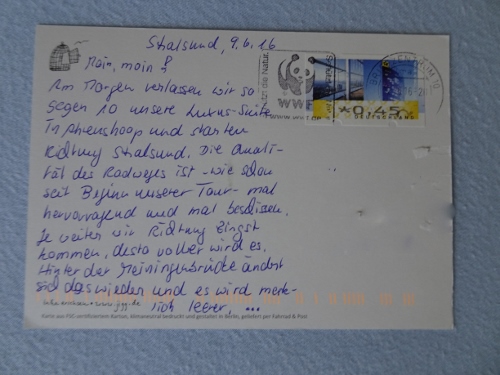 Stralsund, 9.6.16
Moin, moin!
Am Morgen verlassen wir so
gegen 10 unsere Luxus-Suite
in Ahrenshoop und starten
Richtung Stralsund. Die Quali-
tät des Radweges ist - wie schon
seit Beginn unserer Tour - mal
hervorragend und mal bescheiden.
Je weiter wir Richtung Zingst
kommen, desto voller wird es.
Hinter der Meiningenbrücke ändert
sich das wieder und es wird merk-
lich leerer, ...
tzt die Natur.
WWF
www.wwf.de
*0,45
Karte aus FSC-zertifiziertem Karton, klimaneutral bedruckt und gestaltet in Berlin, geliefert per Fahrrad & Post